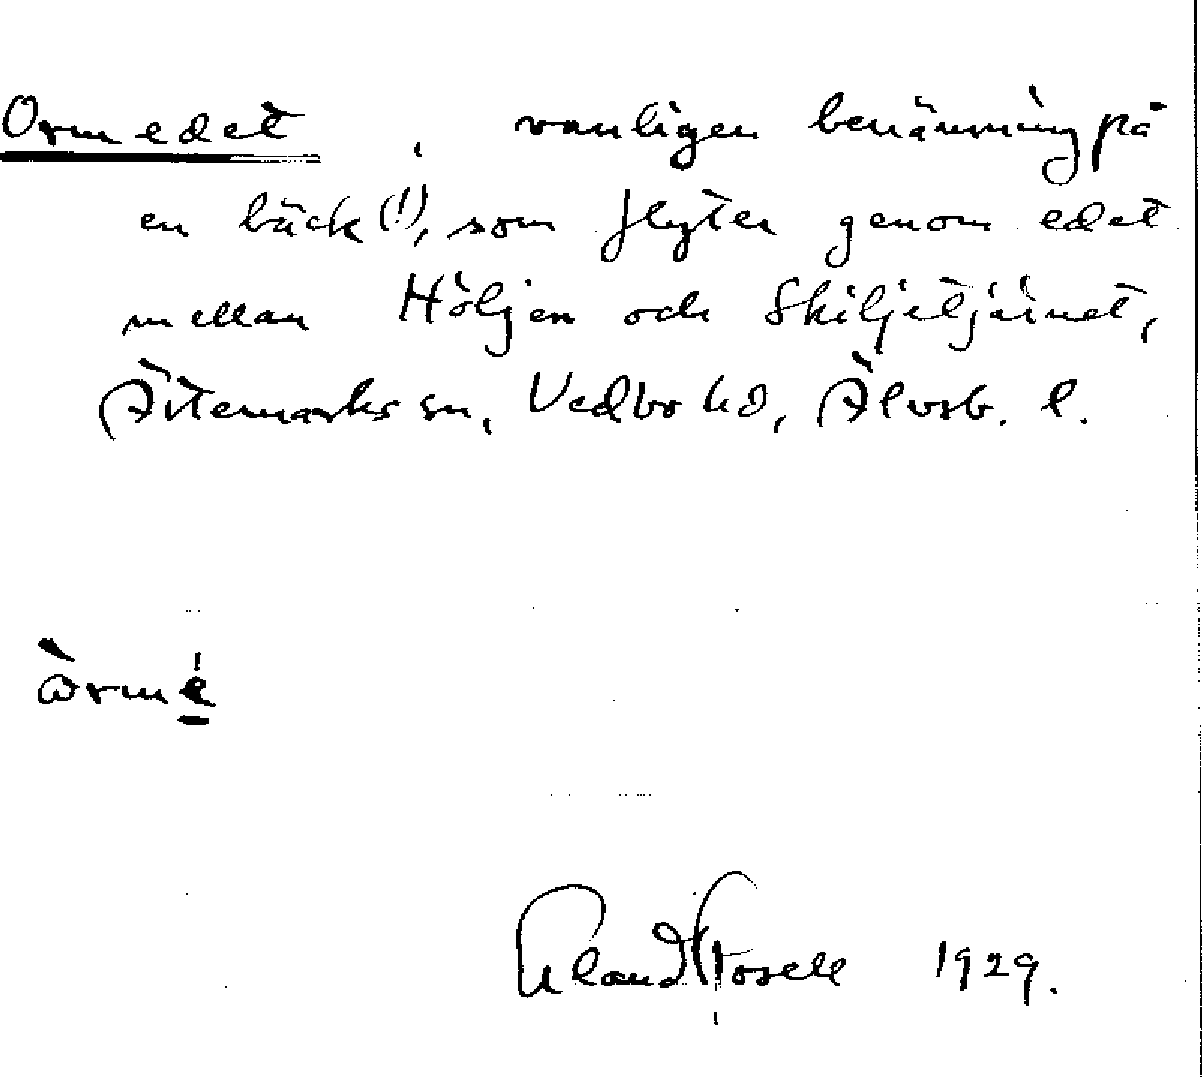 Ormedet, vanligen benämning på
en bäck (!), som flyter genom edet
mellan Höljen och Skiljetjärnet,
Ärtemarks sn, Vedbo hd, Älvsb. l.
òrmé
Erland Rosell 1929.